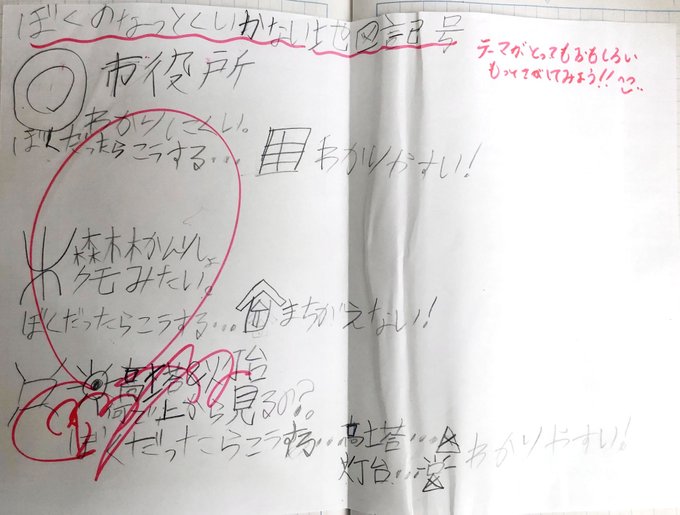 ぼくのなっとくいかない地図記号
テーマがとってもおもしろい
もっとさがしてみよう!!
市役所
わかりにくい。
ぼくだったらこうする... わかりやすい!
森林かんりしょ
クモみたい。
ぼくだったらこうする... まちがえない!
高塔 灯台
何で上から見るの?
ぼくだったらこうする... 高塔...
灯台... わかりやすい!